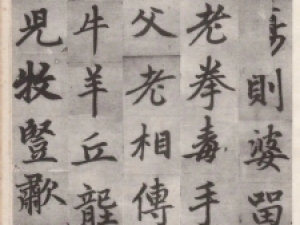 則婆留
老拳毒手
父老相傳
牛羊丘壟
兒牧豎歗